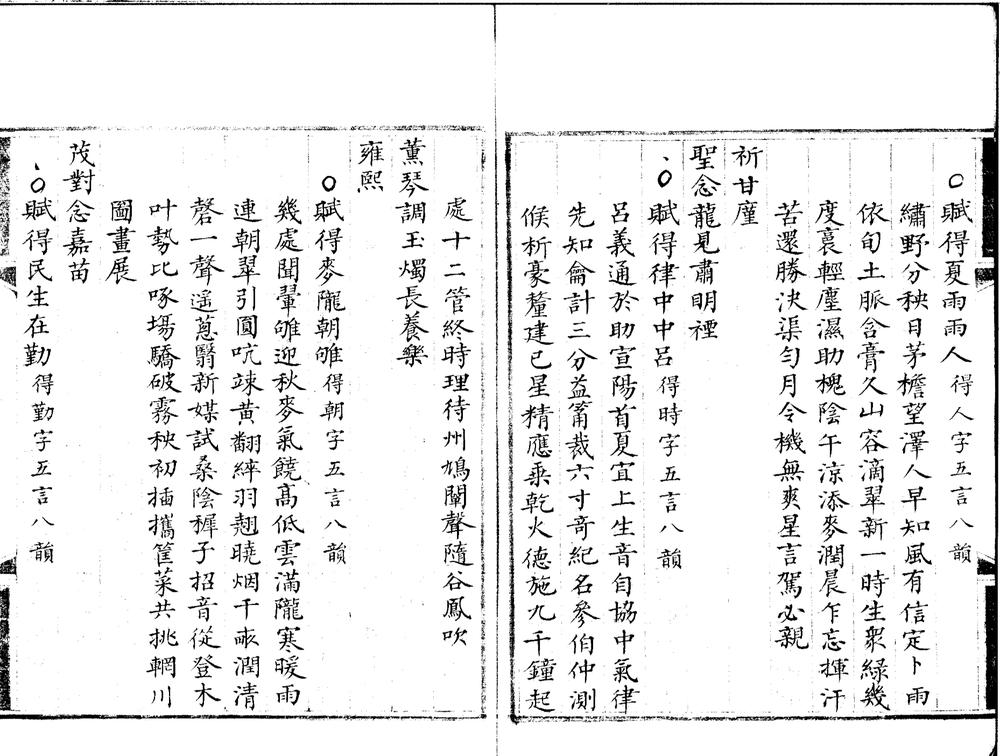 ○賦得夏雨雨人得人字五言八韻
繡野分秧日茅檐望澤人早知風有信定卜雨
依旬土脈含膏久山容滴翠新一時生衆綠幾
度裛輕塵濕助槐陰午涼添麥潤晨乍忘揮汗
苦還勝決渠勻月令機無爽星言駕必親
祈甘廑
聖念龍見肅明禋
○賦得律中中呂得時字五言八韻
呂義通於助宣陽首夏宜上生音自協中氣律
先知侖計三分益筩裁六寸奇紀名參伯仲測
候析豪釐建巳星精應乘乾火德施九千鐘起
處十二管終時理待州鳩闡聲隨谷鳳吹
薰琴調玉燭長養樂
雍熙
○賦得麥隴朝雊得朝字五言八韻
幾處聞翬雊迎秋麥氣饒高低雲滿隴寒暖雨
連朝翠引圓吭竦黃翻綷羽翹曉烟千畝潤清
磬一聲遙蔥翳新媒試桑陰穉子招音從登木
叶勢比啄場驕破霧秧初插攜筐菜共挑輞川
圖畫展
茂對念嘉苗
○賦得民生在勤得勤字五言八韻